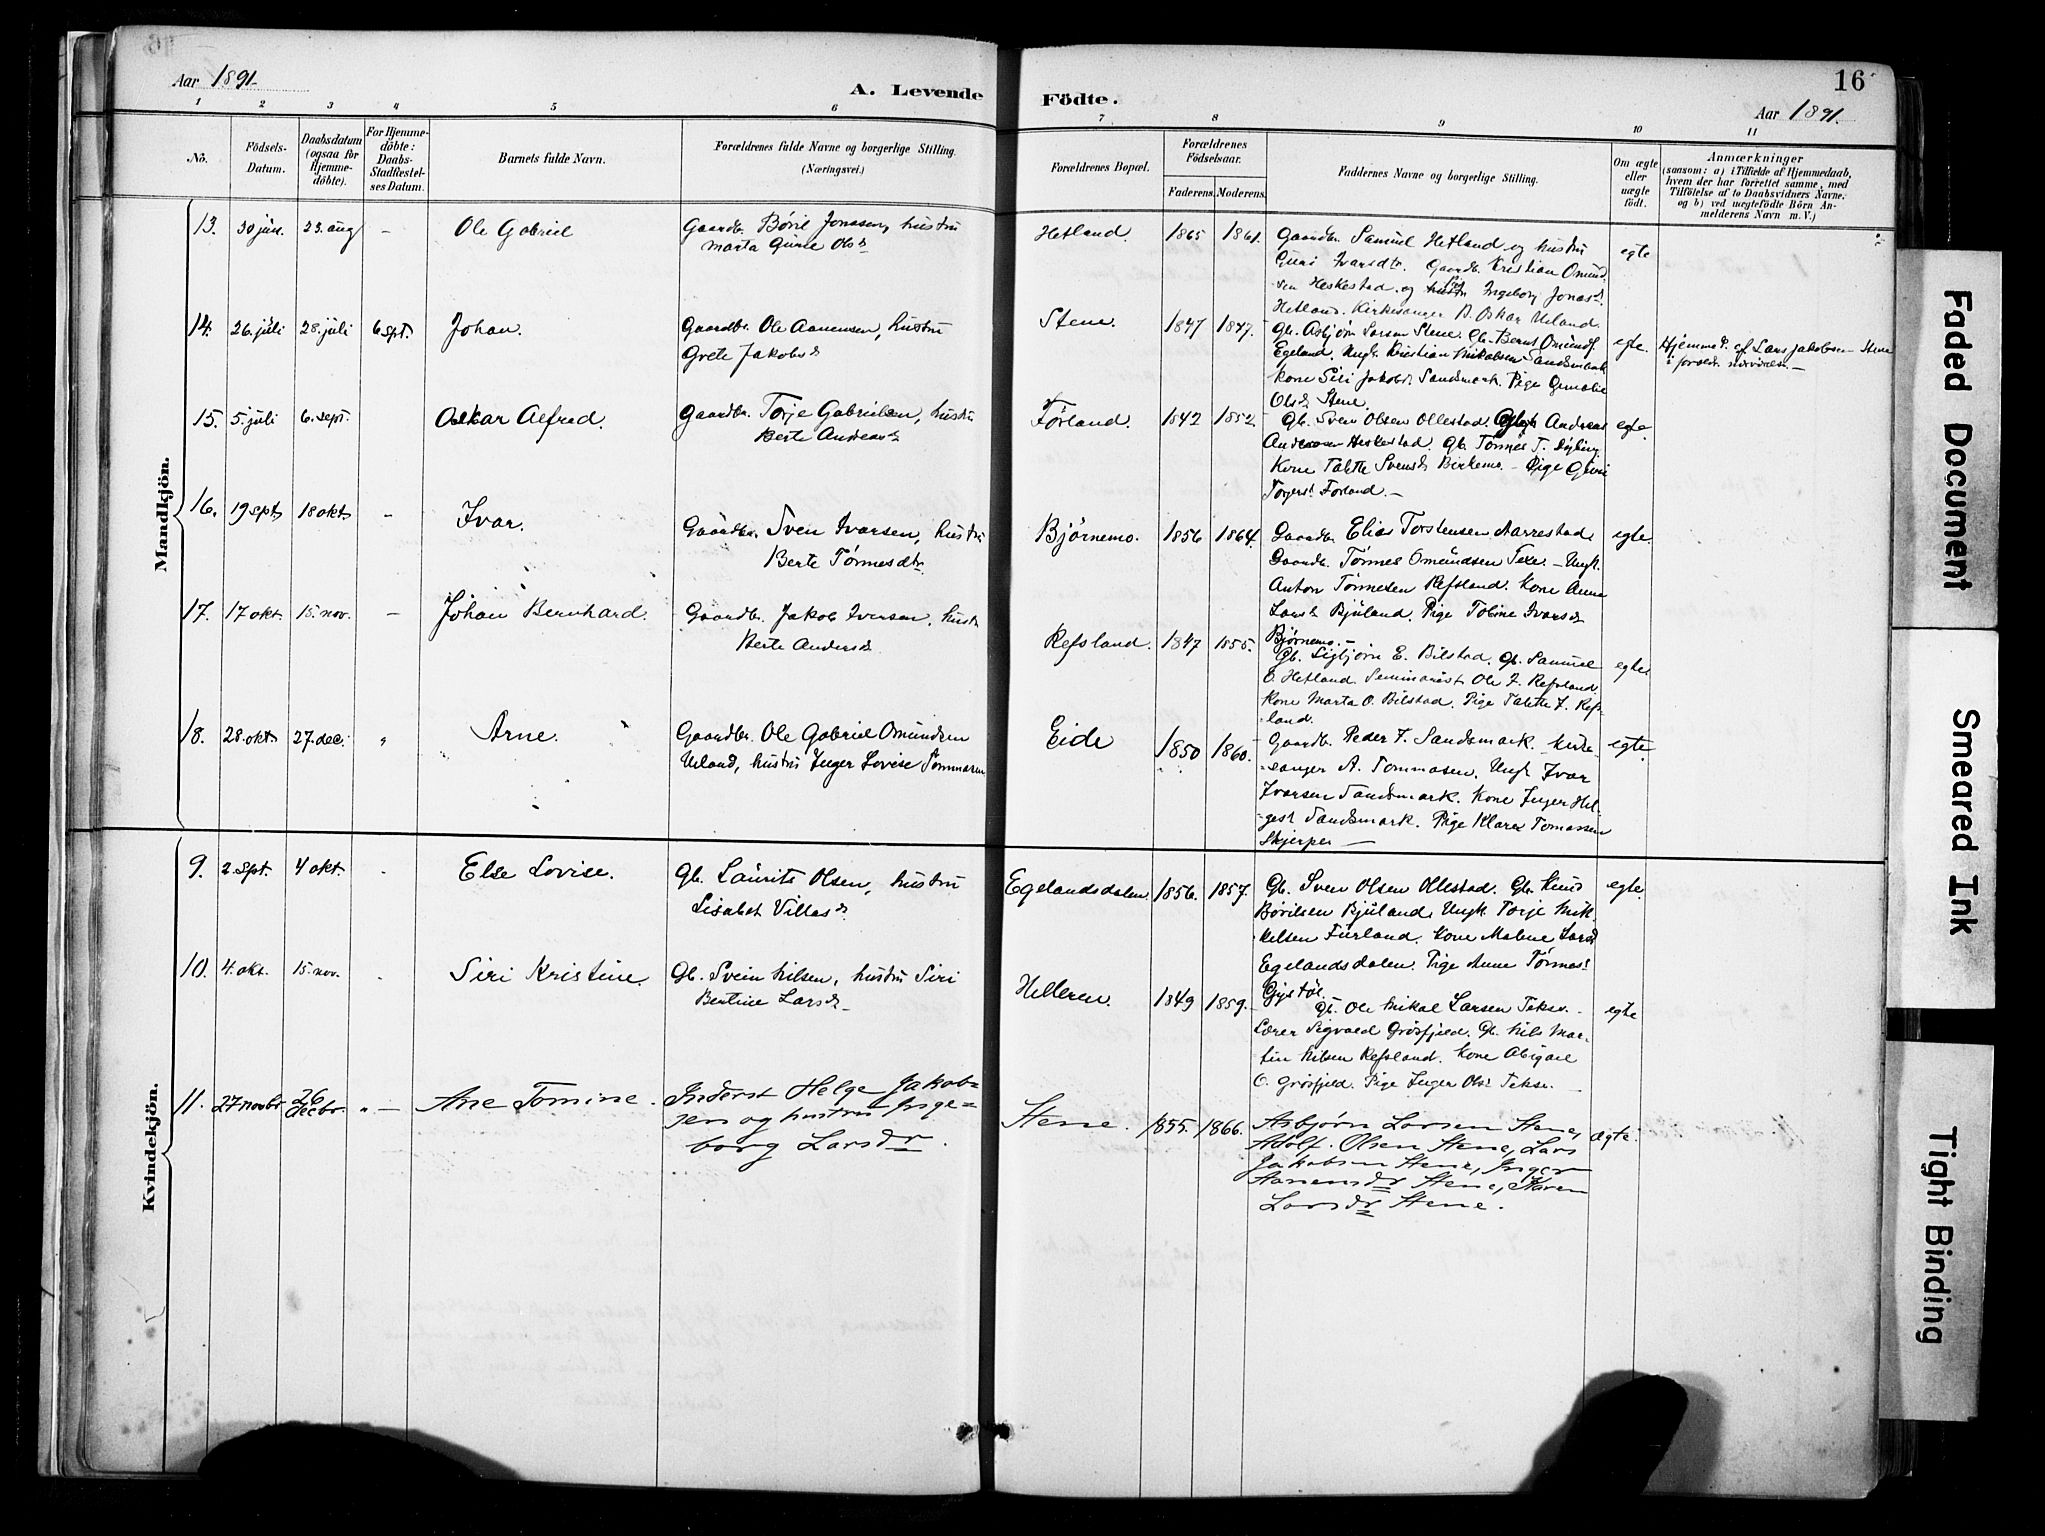 Aar 1891.
A. Levende
Födte.
16
Aar 1891.
1 2 3 4 5 6 7 8 9 10 11
No.
Födsels-
Datum.
Daabsdatum
(ogsaa for
Hjemme-
döbte).
For Hjemme-
döbte:
Daabs-
Stadfæstel-
ses Datum.
Barnets fulde Navn.
Forældrenes fulde Navne og borgerlige Stilling.
(Næringsvei.)
Forældrenes Bopæl.
Forældrenes
Födselsaar.
Faderens. Moderens.
Faddernes Navne og borgerlige Stilling.
Om ægte
eller
uægte
født.
Anmærkninger
(saasom: a) i Tilfælde af Hjemmedaab,
hvem der har forrettet samme, med
Tilföielse af to Daabsvidners Navne.
og b) ved uægtefödte Börn An-
melderens Navn m. V.)
Mandkjön.
13. 30 jun. 23. aug - Ole Gabriel
Gaardbr. Børil Jonassen, hustru
Marta Gurie Olsd
Hetland. 1865 1861.
Gaardbr. Samuel Hetland og hustru
Guri Ivarsdtr. Gaardb. Kristian Omund-
sen Heskestad og Ingeborg Jonasd.
Hetland. Kirkesanger A. Oskar Ueland.
egte
14. 26. juli 28. juli 6 sept. Johan.
Gaardbr. Ole Aanensen, hustru
Grete Jakobsd
Stene. 1847 1847.
Gb. Asbjørn Larsen Stene. Gb. Bernt Omunds.
Egeland. Ungk. Kristian Mikalsen Sandsmark
Kone Siri Jakobsd. Sandsmark. Pige
Olsd. Stene.
egte.
Hjemmed. af Lars Jakobsen Stene
i foreldr. nærværelse. —
15. 5. juli 6. sept. Oskar Alfred.
Gaardbr. Torje Gabrielsen, hustru
Berte Andreasd
Førland. 1842 1852.
Gb. Sven Olsen Ollestad. Andreas
Andreasen Heskestad. Gb. Tønnes T.
Kone Talette Svensd. Birkemo. - Pige
Torgersd. Førland. —
egte.
16. 19 sept. 18 okt. - Ivar.
Gaardbr. Sven Ivarsen, hustru
Berte Tønnesdtr.
Bjørnemo. 1856 1864.
Gaardb. Elias Torstensen Aarrestad.
Gaardb. Tønnes Omundsen - Ungk.
Anton Tønnesen Refsland. Kone Anna
Larsd. Bjuland. Pige Tobine Ivarsd
Bjørnemo. —
egte.
17. 17 okt. 15. nov. - Johan Bernhard.
Gaardbr. Jakob Iversen, hustr.
Berte Andersd
Refsland. 1847 1855.
Gb. Sigbjørn E. Bilstad. Gb. Samuel
E. Hetland. Seminarist Ole J. Refsland.
Kone Marta O. Bilstad. Pige Talette J. Refs-
land.
egte
18. 28. okt. 27. dec. " Arne.
Gaardbr. Ole Gabriel Omundsen
Ueland, hustru Inger Lovise Tommasen
Eide 1850 1860.
Gaardb. Peder T. Sandsmark. Kirke-
sanger A. Tommasen. Ungk Ivar
Ivarsen Sandsmark. Kone Inger Hel-
gesd. Sandsmark. Pige Klara Tomassen
Skjerpe —
egte.
Kvindekjön.
9. 2. Sept. 4 okt. Else Lovise.
Gb. Laurits Olsen, hustru
Lisabet Villasd.
Egelandsdalen. 1856. 1857.
Gb. Sven Olsen Ollestad. Gb. Knud
Børilsen Bjuland. Ungk Torje Mik-
kelsen Fürland. Kone Malene Larsd
Egelandsdalen. Pige Anne Tønnesd.
Gystøl.
egte.
10. 4. okt. 15. nov. Siri Kristine.
Gb. Svein Nilsen, hustru Siri
Bertine Larsd
Helleren. 1849 1859.
Gb. Ole Mikal Larsen Tekse. -
Lærer Sigvald Grøsfjeld. Gb. Nils Mar-
tin Nilsen Refsland. Kone Abigael
O. Grøsfjeld. Pige Inger Olsd. Tekse. —
egte
11. 27 novbr. 26 decbr. " — Ane Tomine.
Inderst Helge Jakob-
sen og hustru Inge-
borg Larsdr.
Stene. 1855. 1866.
Asbjørn Larsen Stene,
Adolf Olsen Stene, Lars
Jakobsen Stene, Inger
Aanensdr Stene, Karen
Larsdr Stene.
ægte.
Faded Document
Smeared Ink
Tight Binding